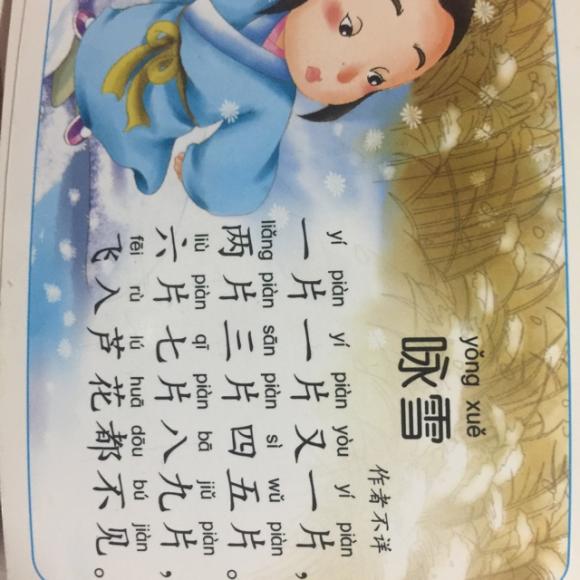 yǒng xuě
咏雪
作者不详
yí piàn yí piàn yòu yí piàn
一片一片又一片，
liǎng piàn sān piàn sì wǔ piàn
两片三片四五片。
liù piàn qī piàn bā jiǔ piàn
六片七片八九片，
fēi rù lú huā dōu bú jiàn
飞入芦花都不见。